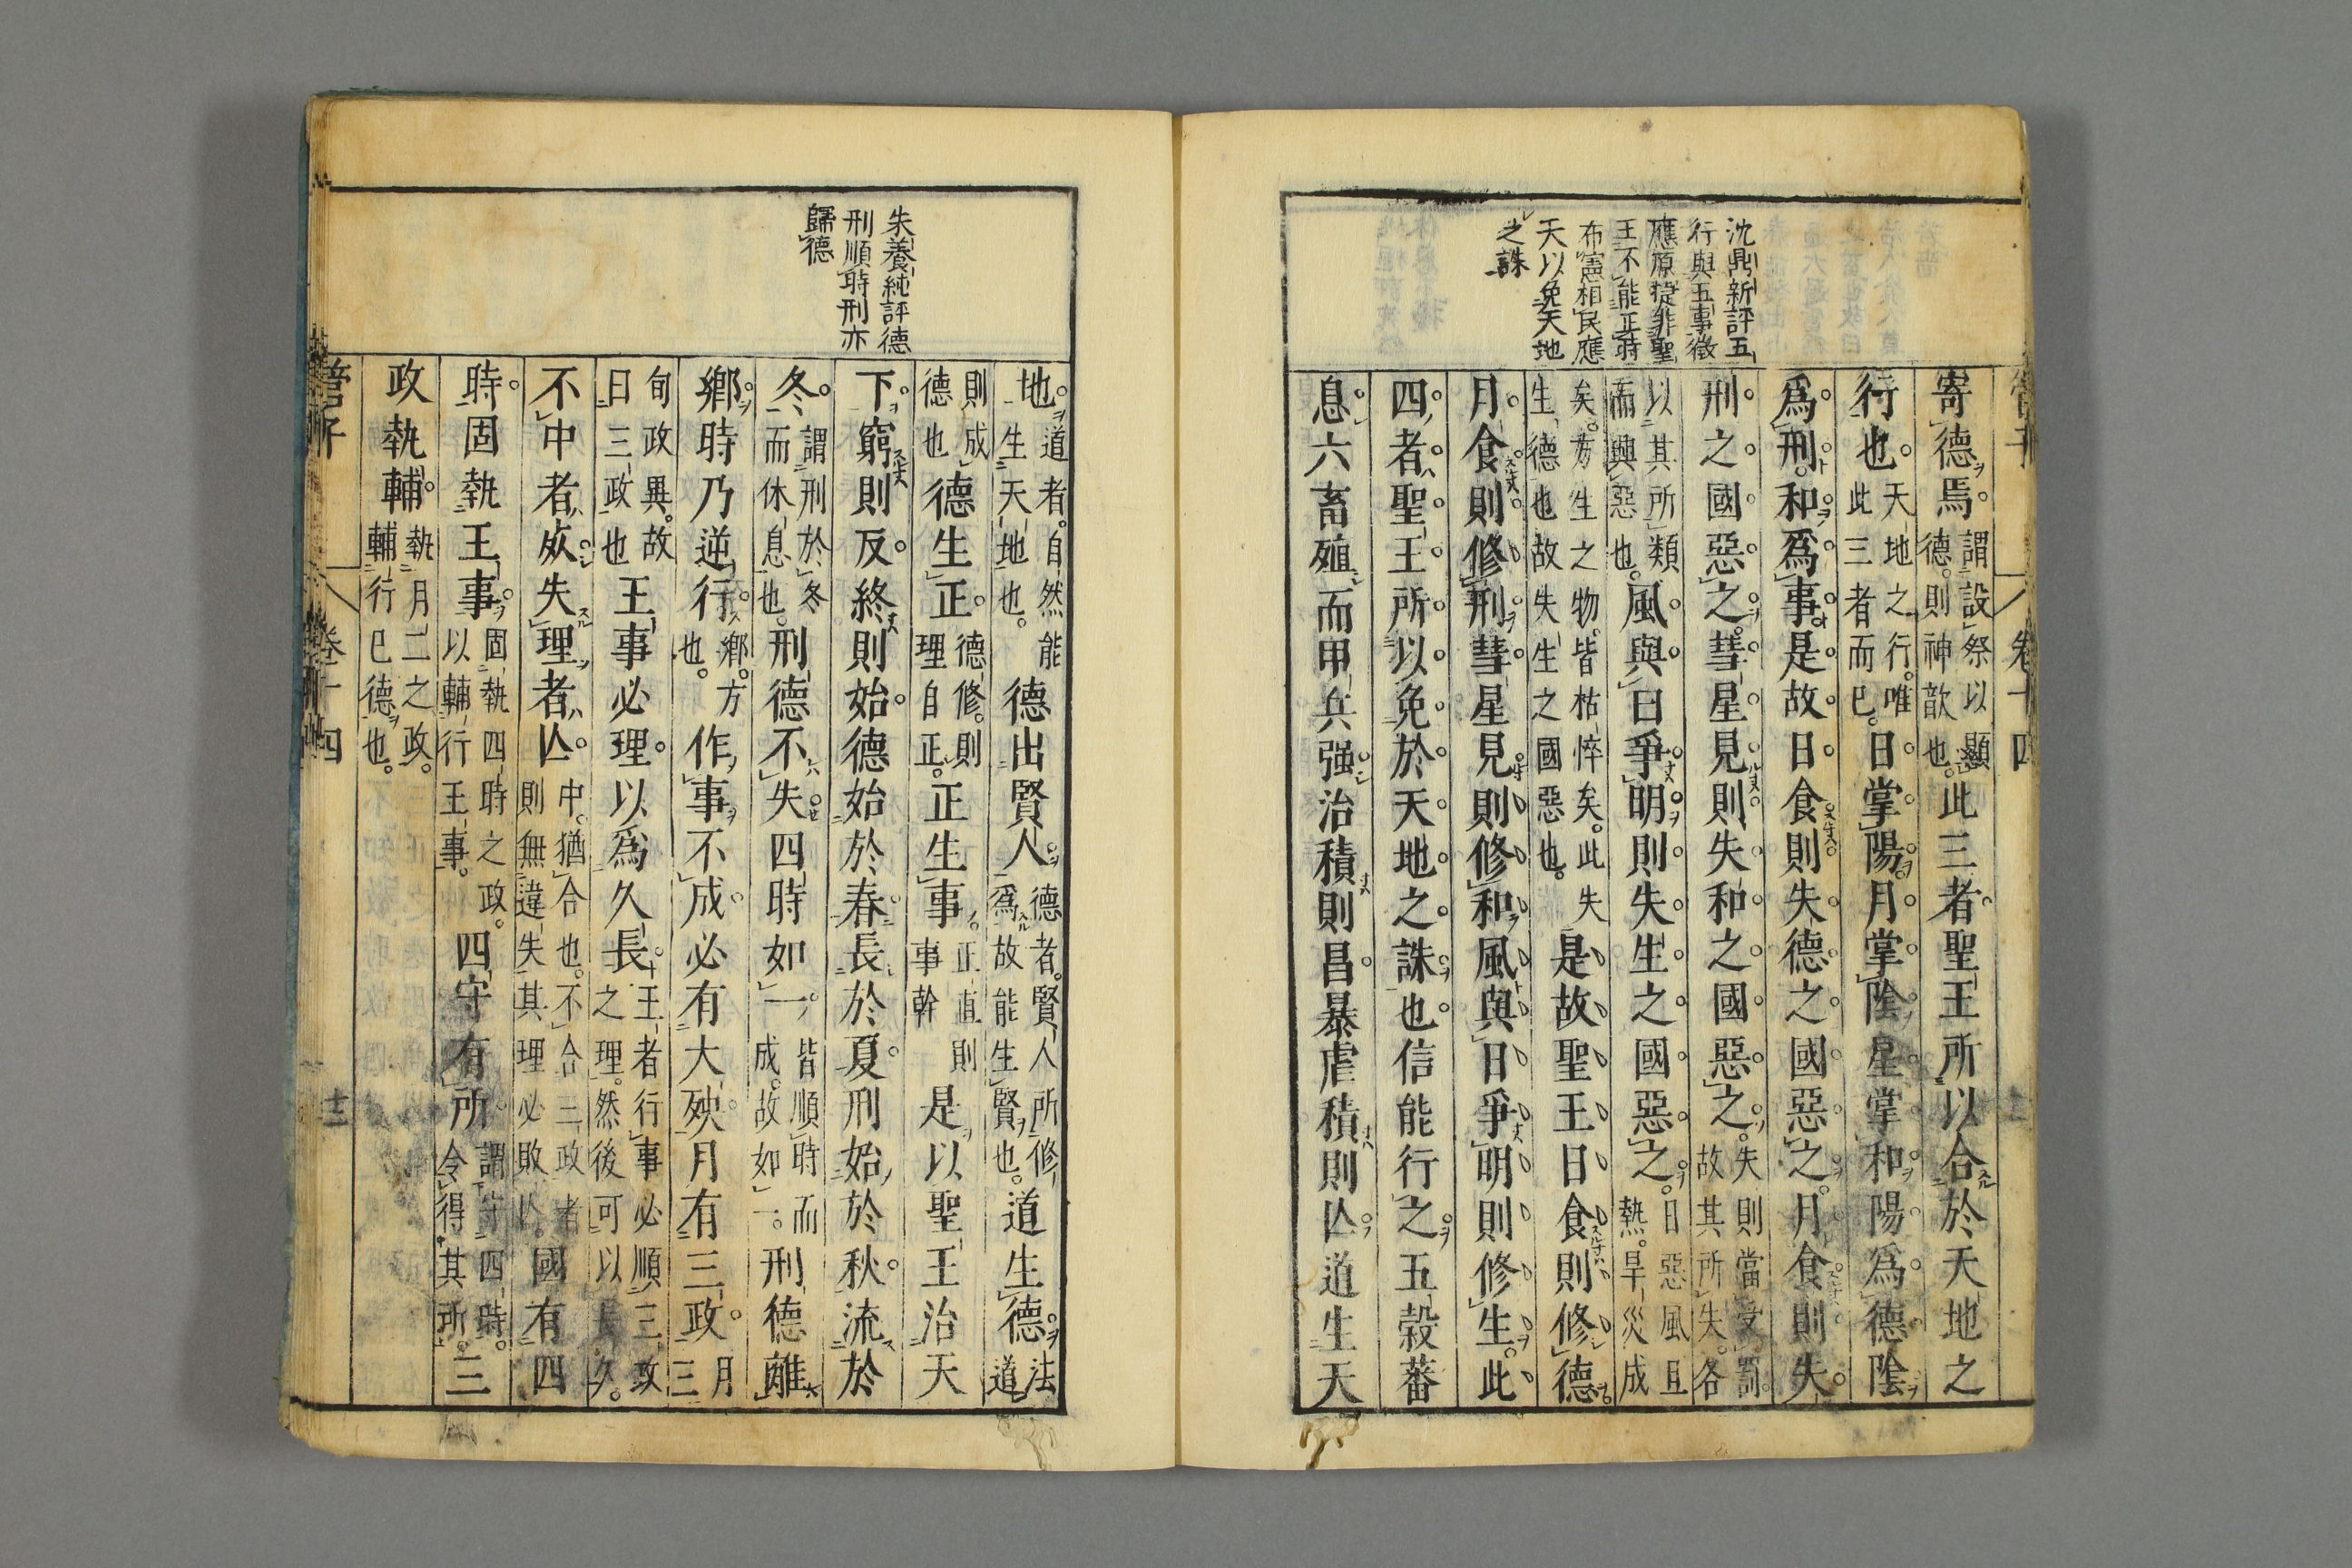 管子 卷十四
沈鼎新評五
行與五事徵
應原捷非聖
王不能正時
布憲相民應
天以免天地
之誅
寄德焉。謂設祭以顯德。則神歆也。此三者聖王所以合於天地之
行也。天地之行。唯此三者而已。日掌陽。月掌陰。星掌和陽爲德陰
爲刑。和爲事。是故日食則失德之國惡之。月食則失
刑之國惡之。彗星見則失和之國惡之。失則當受罰。故其所失。各
以其所類而興惡也。風與日爭明則失生之國惡之。日惡風且熱。旱災成
矣。方生之物。皆枯悴矣。此失生德也故失生之國惡也。是故聖王日食則修德。
月食則修刑。彗星見則修和。風與日爭明則修生。此
四者聖王所以免於天地之誅也。信能行之。五穀蕃
息。六畜殖而甲兵强。治積則昌。暴虐積則亾。道生天
朱養純評德
刑順時刑亦
歸德
地。道者。自然能生天地也。德出賢人。德者。賢人所修。爲故能生賢也。道生德。法道
則成德也德生正。德修。則理自正。正生事。正直則事幹是以聖王治天
下。窮則反。終則始。德始於春。長於夏。刑始於秋。流於
冬。謂刑於冬而休息也。刑德不失。四時如一。皆順時而成。故如一。刑德離
鄉。時乃逆行。鄉。方也。作事不成。必有大殃。月有三政。月三
旬政異。故日三政也王事必理。以爲久長。王者行事必順三政之理。然後可以長久。
不中者死。失理者亾。中。猶合也。不合三政者則無違失其理必敗亾。國有四
時。固執王事。固執四時之政。以輔行王事。四守有所。謂守四時。令得其所。三
政執輔。執月二之政。輔行已德也。
管子 卷十四 十二